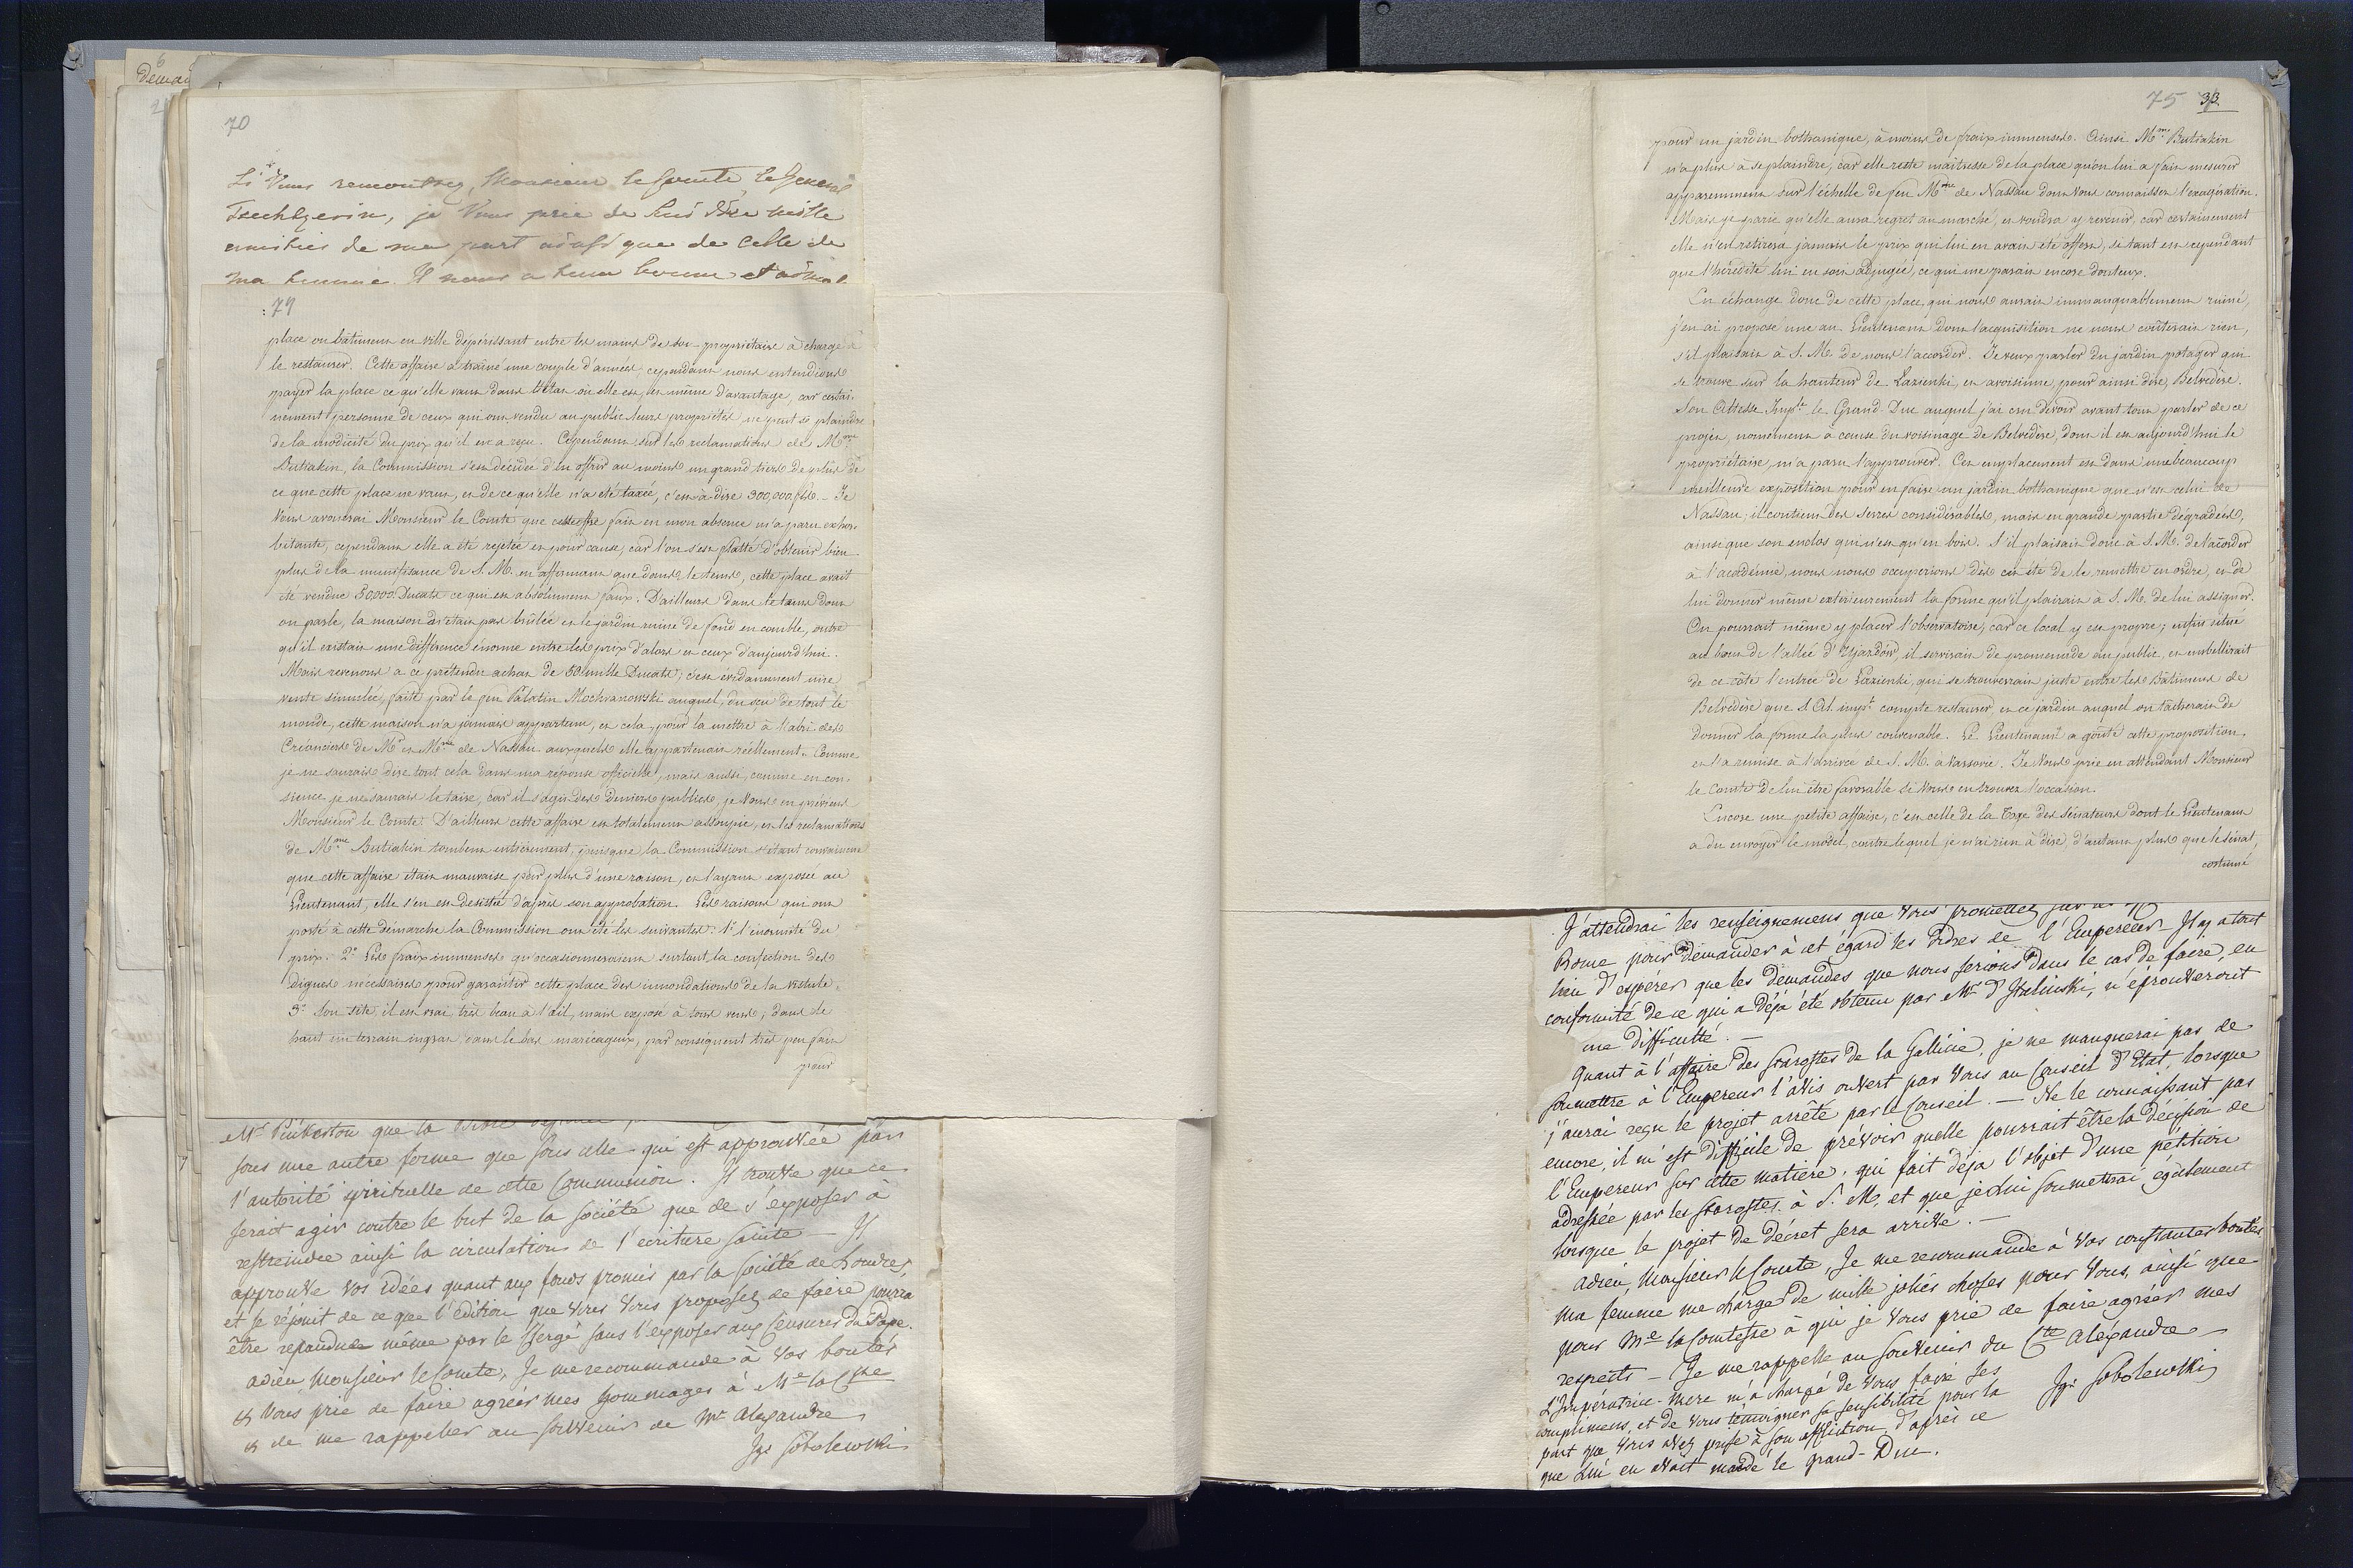 demand
70
Si Vous rencontrez, Monsieur le Comte, le General
Tsechtzerin, je Vous prie de Lui dire mille
amitiés de ma part ainsi que de celle de
ma femme. Il nous a tenu bonne et aimab.
74
place ou bâtiment en ville dépérissant entre les mains de son propriétaire à charge de
le restaurer. Cette affaire a traîné une couple d'années, cependant nous entendions
payer la place ce qu'elle vaut dans l'état où elle est, et même d'avantage, car certai-
nement personne de ceux qui ont vendu au public leurs propriétés ne peut se plaindre
de la modicité du prix qu'il en a reçu. Cependant sur les reclamations de Mme
Butiakin, la Commission s'est décidée d'en offrir au moins un grand tiers de plus de
ce que cette place ne vaut, et de ce qu'elle n'a été taxée, c'est-à-dire 300,000 fl. – Je
Vous avouerai Monsieur le Comte que cette offre fait en mon absence m'a paru exhor-
bitante, cependant elle a été rejetée et pour cause, car l'on s'est flatté d'obtenir bien
plus de la munifisance de S. M. en affirmant que dans le tems, cette place avait
été vendue 50,000. Ducats ce qui est absolument faux. D'ailleurs dans le tems dont
on parle, la maison n'était pas brûlée et le jardin ruiné de fond en comble, outre
qu'il existait une différence énorme entre les prix d'alors et ceux d'aujourd'hui.
Mais revenons à ce prétendu achat de 50 mille Ducats; c'est évidamment une
vente simulée, faite par le feu Palatin Mochranowski auquel, du seu de tout le
monde, cette maison n'a jamais appartenu, et cela pour la mettre à l'abri des
Créanciers de Mr et Mme de Nassau auxquels elle appartenait réellement. Comme
je ne saurais dire tout cela dans ma réponse officielle, mais aussi, comme en con-
sience je ne saurais le taire, car il s'agit des deniers publics, je Vous en préviens
Monsieur le Comte. D'ailleurs cette affaire est totalement assoupie, et les reclamations
de Mme Butiakin tombent entièrement, puisque la Commission s'étant convaincue
que cette affaire étoit mauvaise pour plus d'une raison, et l'ayant exposée au
Lieutenant, elle s'en est desistée d'après son approbation. Les raisons qui ont
porté à cette démarche la Commission ont été les suivantes: 1° l'énormité du
prix. 2° Les fraix immenses qu'occasionneroient surtout la confection des
digues nécessaires pour garantir cette place des innondations de la Vistule.
3° Son site, il est vrai très beau à l'œil, mais exposé à tous vents; dans le
haut un terrain ingrat, dans le bas marécageux, par conséquent très peu fait
pour
Mr Pinkerton que la Bible
sous une autre forme que sous celle qui est approuvée par
l'autorité spirituelle de cette Communion. Il trouve que ce
serait agir contre le but de la société que de s'exposer à
restreindre ainsi la circulation de l'écriture sainte – Il
approuve vos idées quant aux fonds promis par la société de Londres,
et se réjouit de ce que l'édition que Vous Vous proposez de faire pourra
être repandue même par le Clergé sans l'exposer aux Censures du Pape.
adieu, Monsieur le Comte, Je me recommande à Vos bontés
et Vous prie de faire agréer mes hommages à Me la Ctsse
et de me rappeller au souvenir de Mr Alexandre,
Ign Sobolewski
75 33
pour un jardin bothanique, à moins de fraix immenses. Ainsi Mme Butiakin
n'a plus à se plaindre, car elle reste maîtresse de la place qu'on lui a fait mesurer
apparemment sur l'échelle de feu Mme de Nassau dont Vous connaissez l'exagération.
Mais je parie qu'elle aura regret au marché, et voudra y revenir, car certainement
elle n'en retirera jamais le prix qui lui en avait été offert, si tant est cependant
que l'hérédité lui en soit adjugée, ce qui me parait encore douteux.
En échange donc de cette place, qui nous aurait immanquablement ruiné,
j'en ai proposé une au Lieutenant dont l'acquisition ne nous coûterait rien,
s'il plaisait à S. M. de nous l'accorder. Je veux parler du jardin potager qui
se trouve sur la hauteur de Lazienki, et avoisine, pour ainsi dire, Belvedère.
Son Altesse Imple le Grand-Duc auquel j'ai cru devoir avant tout parler de ce
projet, nommément à cause du voisinage de Belvedère, dont il est aujourd'hui le
propriétaire, m'a paru l'approuver. Cet emplacement est dans une beaucoup
meilleure exposition pour en faire un jardin bothanique que n'est celui de
Nassau; il contient des serres considérables, mais en grande partie dégradées,
ainsi que son enclos qui n'est qu'en bois. S'il plaisait donc à S. M. de l'accorder
à l'académie, nous nous occuperions dès cet été de le remettre en ordre, et de
lui donner même exterieurement la forme qu'il plairait à S. M. de lui assigner.
On pourrait même y placer l'observatoire, car ce local y est propre; enfin situé
au bout de l'allée d'Ujazdów, il servirait de promenade au public, et embellirait
de ce côté l'entrée de Lazienki, qui se trouverait juste entre les Bâtimens de
Belvedère que S. Al. impl compte restaurer et ce jardin auquel on tâcherait de
donner la forme la plus convenable. Le Lieutenant a goûté cette proposition,
et l'a remise à l'arrivée de S. M. à Varsovie. Je Vous prie en attendant Monsieur
le Comte de lui être favorable si Vous en trouvez l'occasion.
Encore une petite affaire, c'est celle de la Toge des Sénateurs dont le Lieutenant
a du envoyer le model, contre lequel je n'ai rien à dire, d'autant plus que le Sénat,
costumé
J'attendrai les renseignemens que Vous promettez
Rome pour demander à cet égard les ordres de l'Empereur. Il y a tout
lieu d'espérer que les demandes que nous serions dans le cas de faire, en
conformité de ce qui a déjà été obtenu par Mr d'Italinski, n'éprouveroit
une difficulté. –
Quant à l'affaire des starostes de la Gallicie, je ne manquerai pas de
soumettre à l'Empereur l'avis ouvert par Vous au Conseil d'Etat, lorsque
j'aurai reçu le projet arrêté par le Conseil. – Ne le connaissant pas
encore, il m'est difficile de prévoir quelle pourrait être la décision de
l'Empereur sur cette matière, qui fait déja l'objet d'une pétition
adressée par les starostes à S. M. et que je lui soumettrai également
lorsque le projet de décret sera arrivé. –
adieu, Monsieur le Comte, Je me recommande à Vos constantes bontés
Ma femme me charge de mille jolies choses pour Vous, ainsi que
pour Me la Comtesse à qui je Vous prie de faire agréer mes
respects – Je me rappelle au souvenir du Cte Alexandre –
Ign Sobolewski
L'Impératrice-Mere m'a chargé de Vous faire ses
complimens, et de Vous témoigner sa sensibilité pour la
part que Vous avez prise à son affliction, d'après ce
que Lui en avait mandé le Grand-Duc.